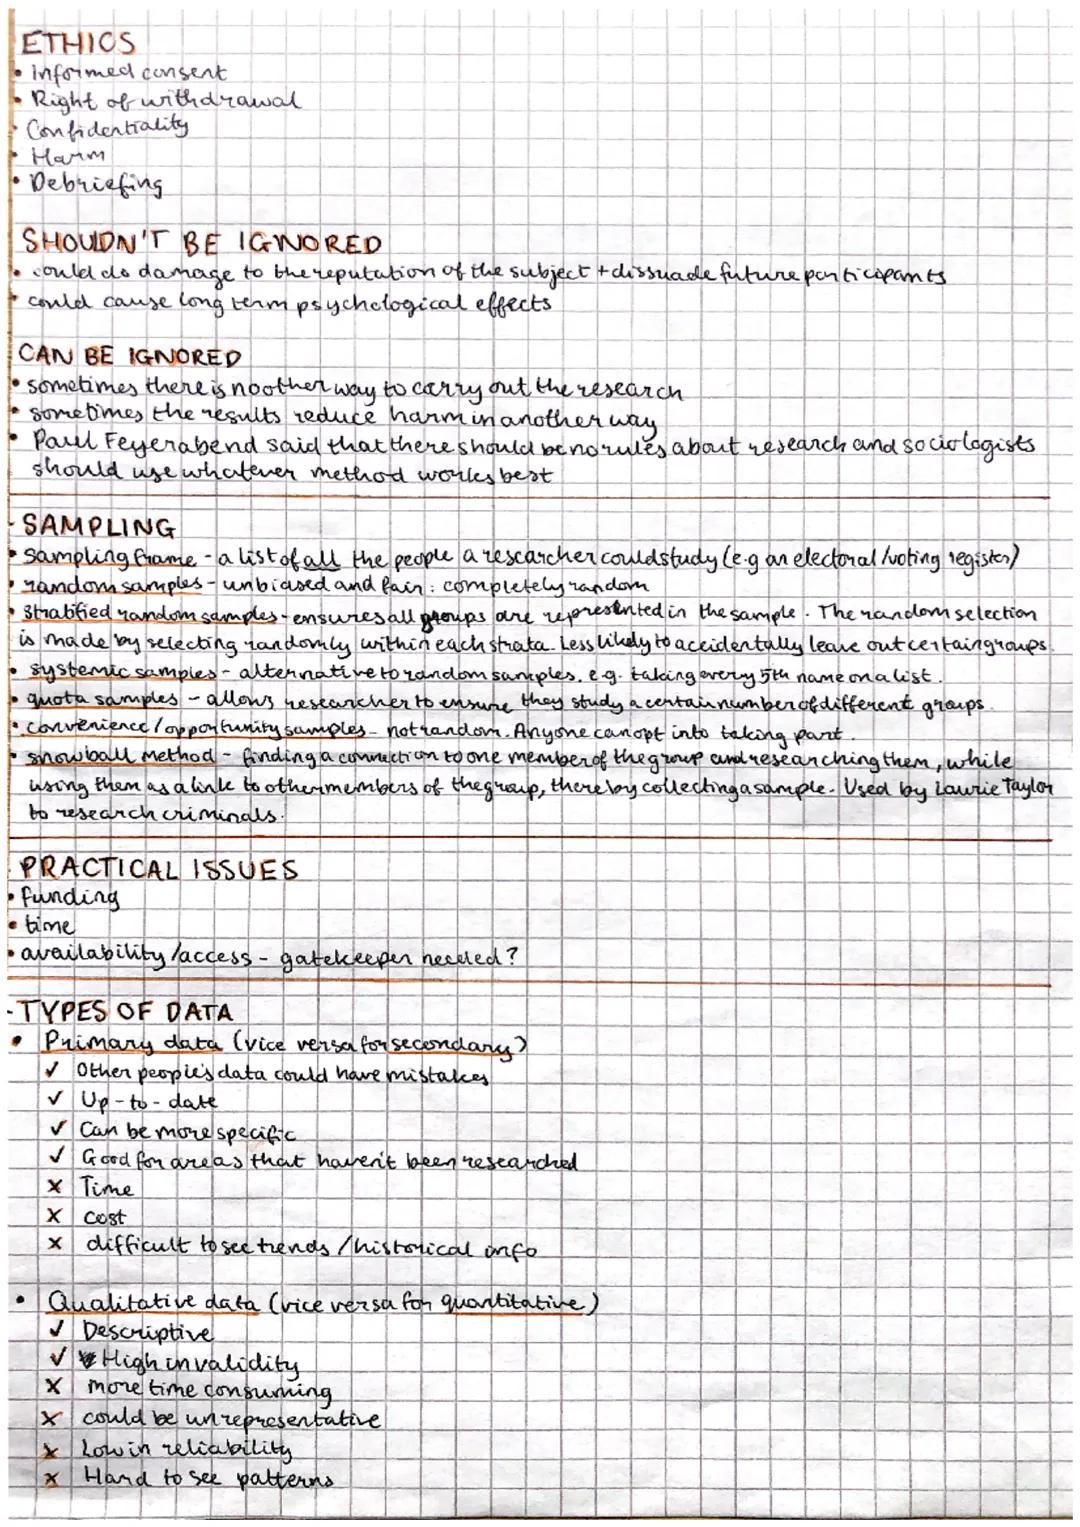 ETHICS
• Informed consent
• Right of withdrawal
• Confidentiality
• Harm
• Debriefing
SHOULDN'T BE IGNORED
• could do damage to the reputation of the subject + dissuade future participants
• could cause long term psychological effects
CAN BE IGNORED
• sometimes there is no other way to carry out the research
• sometimes the results reduce harm in another way
• Paul Feyerabend said that there should be no rules about research and sociologists
should use whatever method works best
- SAMPLING
• Sampling frame - a list of all the people a researcher could study (e.g an electoral /voting register)
• random samples - unbiased and fair : completely random
• Stratified random samples - ensures all groups are represented in the sample. The random selection
is made by selecting randomly within each strata. Less likely to accidentally leave out certain groups.
• systemic samples - alternative to random samples. e.g. taking every 5th name on a list.
• quota samples - allows researcher to ensure they study a certain number of different groups.
• convenience / opportunity samples - not random. Anyone can opt into taking part.
• snowball method - finding a connection to one member of the group and researching them, while
using them as a link to other members of the group, thereby collecting a sample. Used by Laurie Taylor
to research criminals.
PRACTICAL ISSUES
• funding
• time
• availability /access - gatekeeper needed?
- TYPES OF DATA
• Primary data (vice versa for secondary)
✓ Other people's data could have mistakes
✓ Up-to-date
✓ Can be more specific
✓ Good for areas that haven't been researched
x Time
x cost
x difficult to see trends /historical info
• Qualitative data (vice versa for quantitative)
✓ Descriptive
✓ High in validity
x more time consuming
x could be unrepresentative
x Low in reliability
x Hard to see patterns